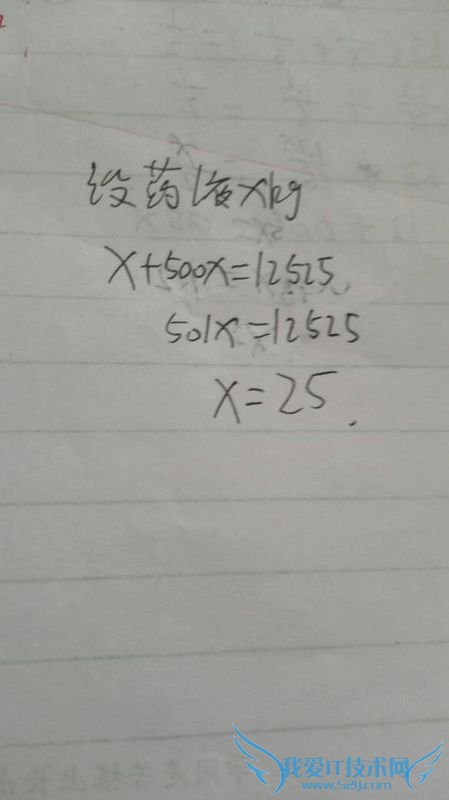 设药液xkg
x+500x=12525
501x=12525
x=25.
我爱IT技术网
www.52ij.com